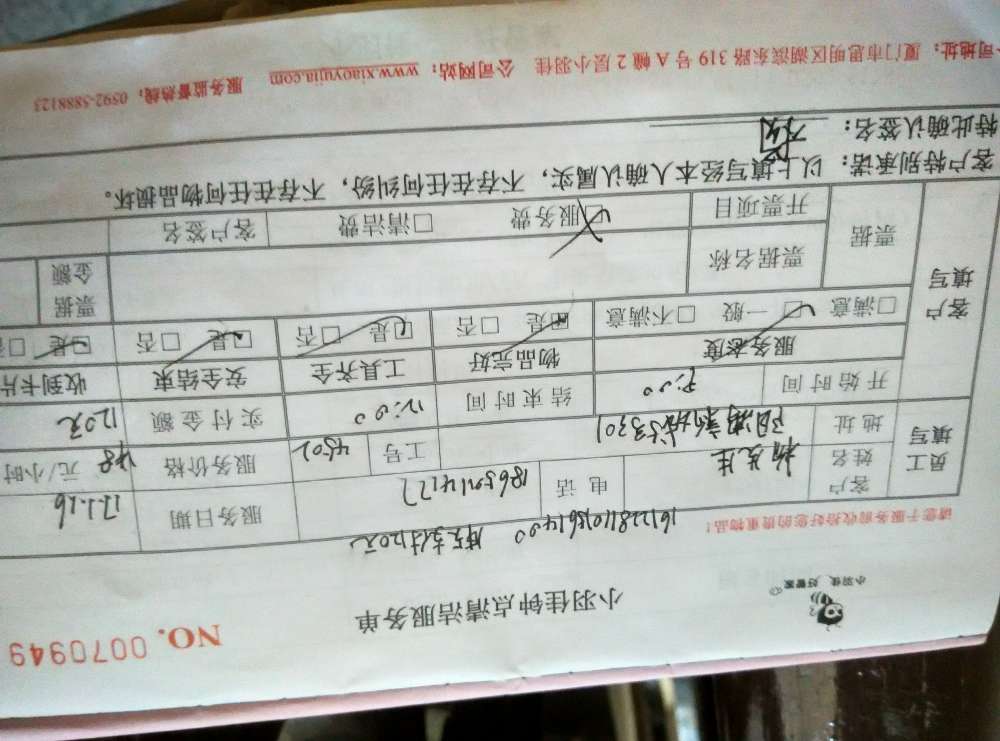 小羽佳 好管家
小羽佳钟点清洁服务单
NO. 0070949
请您于服务前收拾好您的贵重物品！
员工填写
客户姓名
电话
服务日期 17.1.16
工号 4502
服务价格 48 元/小时
地址
开始时间 8:00
结束时间 12:00
实付金额 120元
客户填写
服务态度
物品完好
工具齐全
安全结束
收到卡片
□满意 □一般 □不满意
□是 □否
□是 □否
□是 □否
□是 □否
票据
票据名称
票据金额
开票项目
□服务费 □清洁费
客户签名
客户特别承诺：以上填写经本人确认属实，不存在任何纠纷，不存在任何物品损坏。
特此确认签名：
公司地址：厦门市思明区湖滨东路 319 号 A 幢 2 层小羽佳 公司网站：www.xiaoyujia.com 服务监督热线：0592-5888123